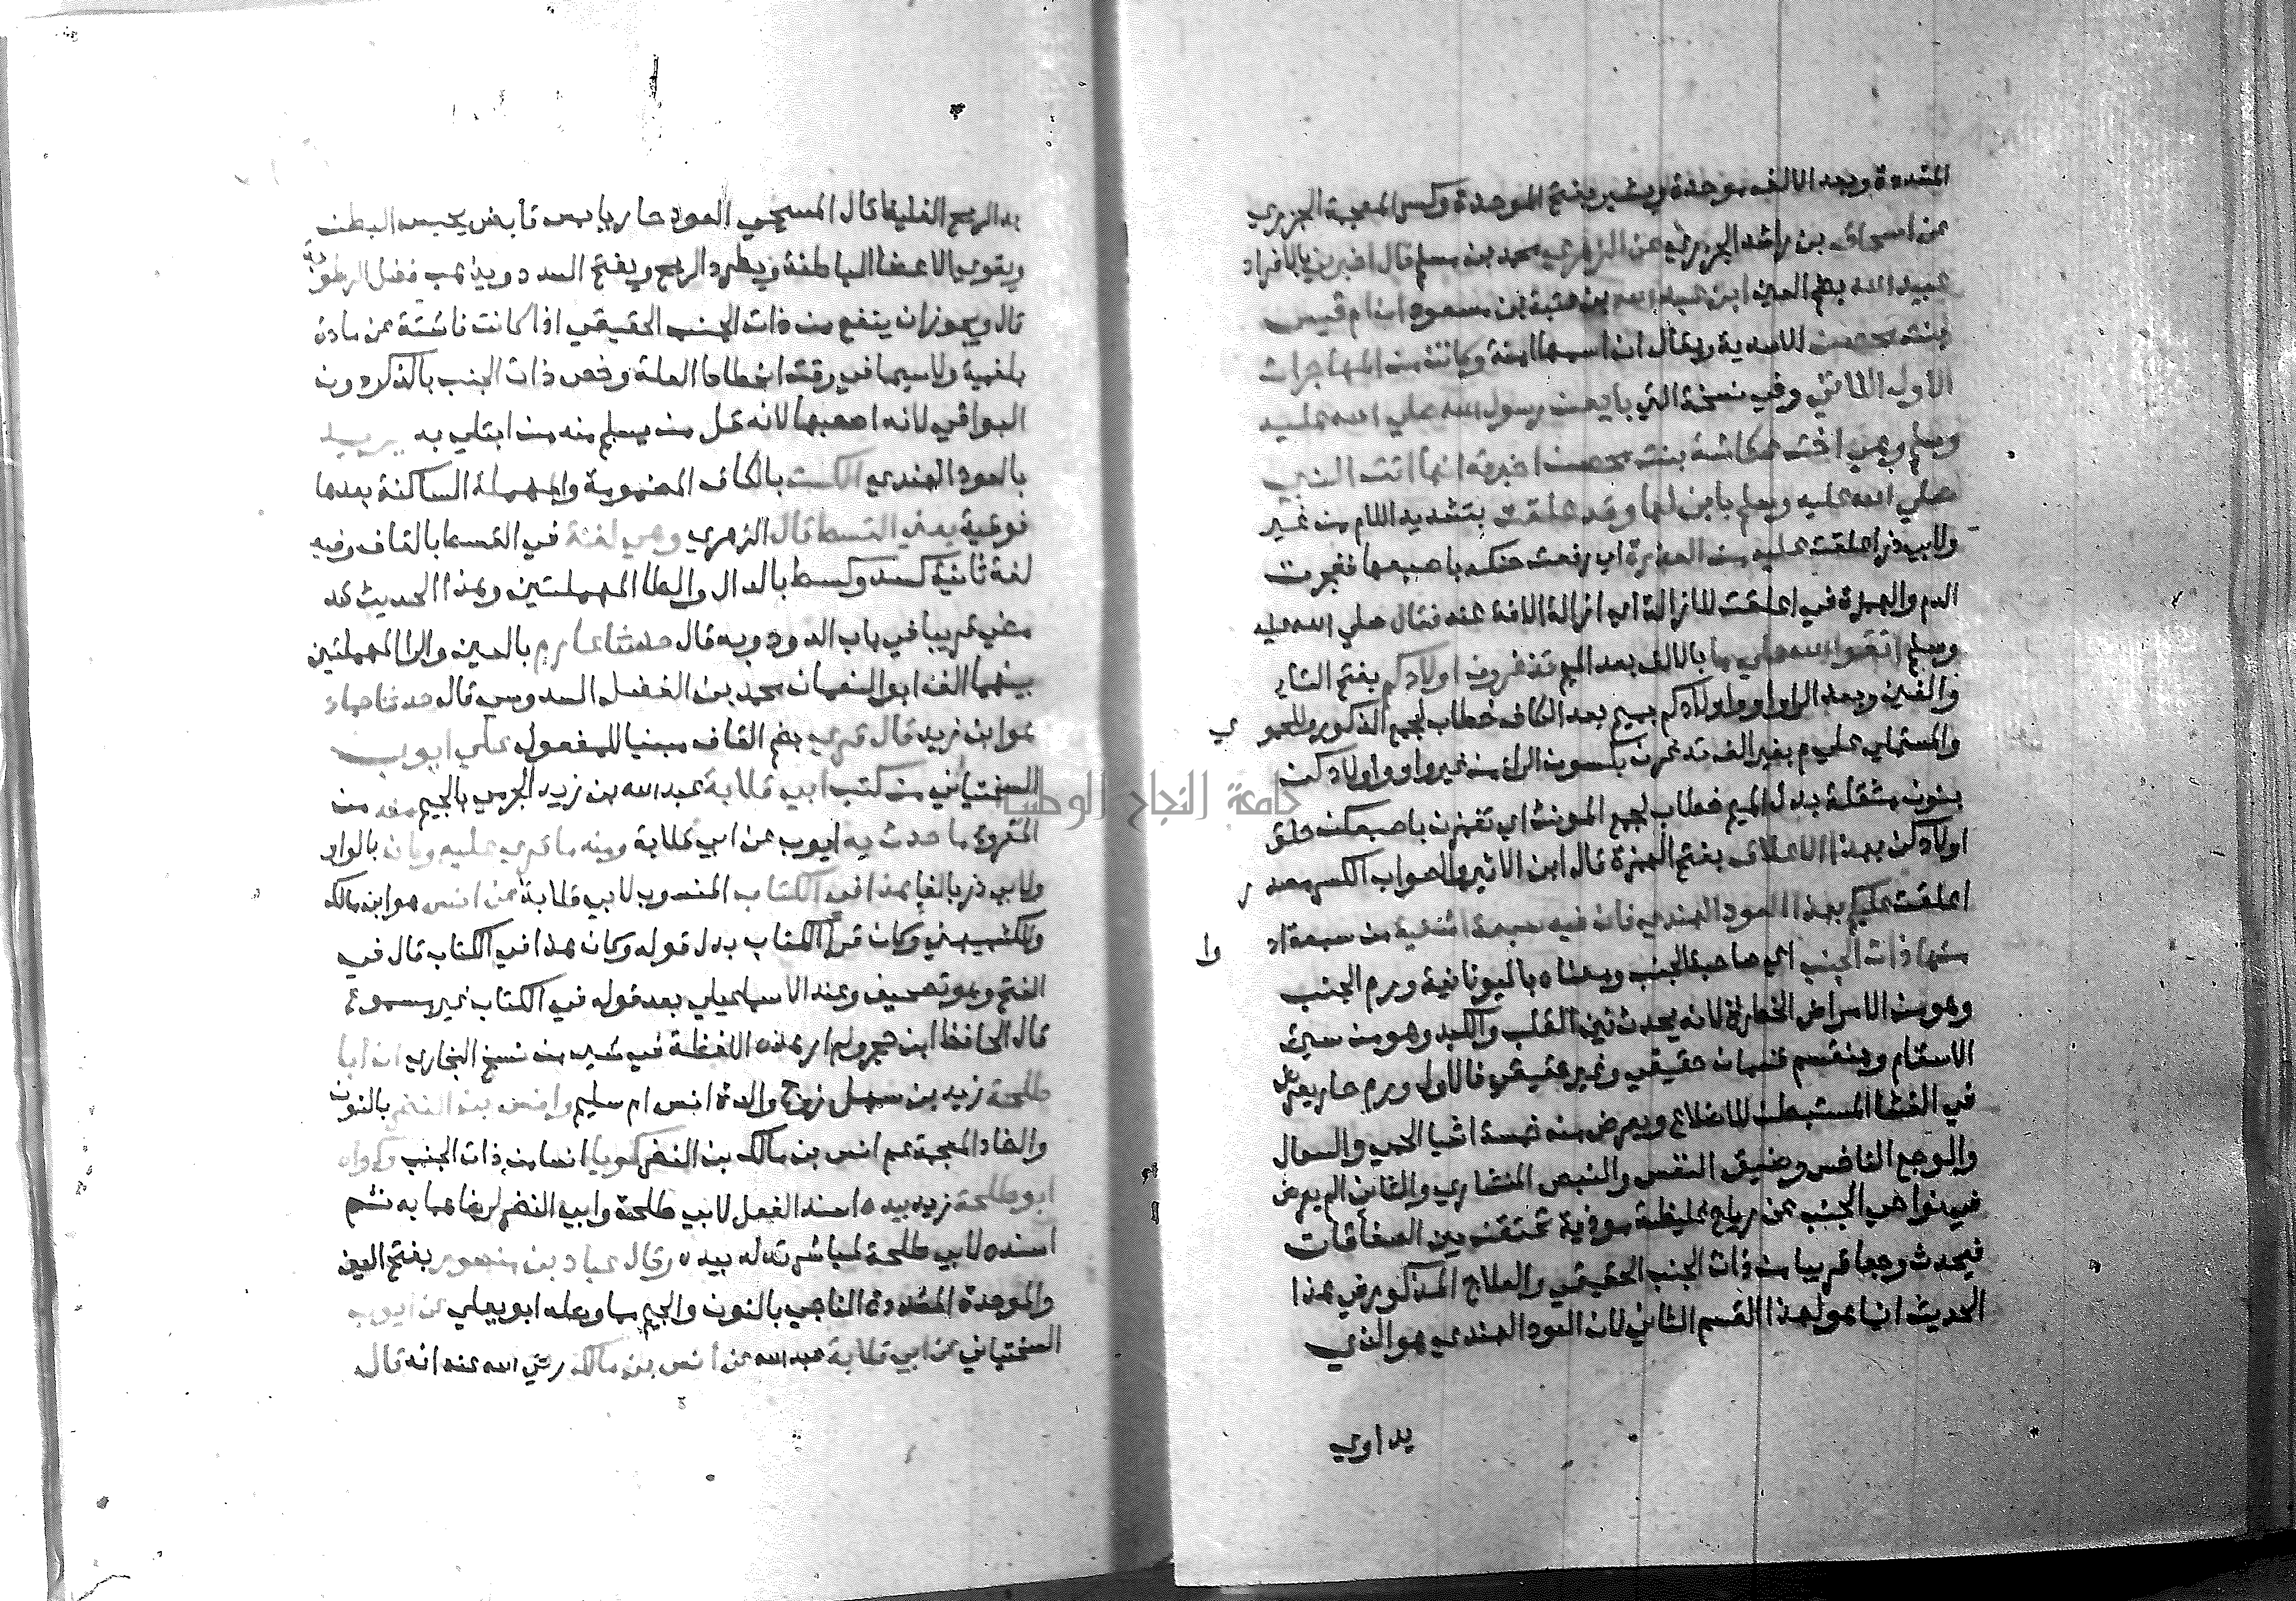 المشددة وبعد الالف موحدة وبشير بفتح الموحدة وكسر المعجمة الجزري
عن اسحاق بن راشد الجزري عن الزهري محمد بن مسلم قال اخبرني بالافراد
عبيد الله بضم العين ابن عبد الله بن عتبة بن مسعود ان ام قيس
بنت محصن الاسدية ويقال ان اسمها امنة وكانت من المهاجرات
الاول اللاتي وفي نسخة التي بايعن رسول الله صلي الله عليه
وسلم وهي اخت عكاشة بنت محصن اخبرته انها اتت النبي
صلي الله عليه وسلم بابن لها وقد علقت بتشديد اللام من غير
ولابي ذر اعلقت عليه من العذرة اي رفعت حنكه باصبعها ففجرت
الدم والهمزة في اعلقت للازالة اي ازالة الافة عنه فقال صلي الله عليه
وسلم اتقوا الله علي ما بالالف بعد الميم تدغرون اولادكم بفتح التاء
والغين وبعد الراء واو اولادكم بميم بعد الكاف خطاب لجمع الذكور وللحموي
والمستملي علي م بغير الف تدغرن بسكون الراء من غير واو اولادكن
بنون مثقلة بدل الميم خطاب لجمع المونث اي تغمزن باصبعكن حلق
اولادكن بهذا الاعلاق بفتح الهمزة قال ابن الاثير والصواب الكسر مصدر
اعلقت عليكم بهذا العود الهندي فان فيه سبعة اشفية من سبعة ادوا
منها ذات الجنب اي صاحبة الجنب ومعناه باليونانية ورم الجنب
وهو من الامراض الخطرة لانه يحدث بين القلب والكبد وهو من سيئ
الاسقام وينقسم قسمان حقيقي وغير حقيقي فالاول ورم حار يعرض
في الغشا المستبطن للاضلاع ويعرض منه خمسة اشيا الحمي والسعال
والوجع الناخس وضيق النفس والنبض المنشاري والثاني الم يعرض
في نواحي الجنب عن رياح غليظة موذية تحتقن بين الصفاقات
فيحدث وجعا قريبا من ذات الجنب الحقيقي والعلاج المذكور في هذا
الحديث انما هو لهذا القسم الثاني لان العود الهندي هو الذي
يداوي
به الريح الغليظة قال المسبحي العود حار يابس قابض يحبس البطن
ويقوي الاعضا الباطنة ويطرد الريح ويفتح السدد ويذهب فضل الرطوبة
قال ويجوز ان ينفع من ذات الجنب الحقيقي اذا كانت ناشئة عن مادة
بلغمية ولا سيما في وقت انحطاط العلة وخص ذات الجنب بالذكر دون
البواقي لانه اصعبها لانه قل من يسلم منه من ابتلي به يريد
بالعود الهندي الكست بالكاف المضمومة والمهملة الساكنة بعدها
فوقية يعني القسط قال الزهري وهي لغة في القسط بالقاف وفيه
لغة ثانية كسد وكسط بالدال والطا المهملتين وهذا الحديث قد
مضي قريبا في باب اللدود وبه قال حدثنا عارم بالعين والرا المهملتين
بينهما الف ابو النعمان محمد بن الفضل السدوسي قال حدثنا حماد
هو ابن زيد قال قري بضم القاف مبنيا للمفعول علي ايوب
السختياني من كتب ابي قلابة عبد الله بن زيد الجرمي بالجيم منه من
المقروء ما حدث به ايوب عن ابي قلابة ومنه ما قري عليه وكان بالواو
ولابي ذر بالفا هذا في الكتاب المنسوب لابي قلابة عن انس هو ابن مالك
وللكشميهني وكان قرا الكتاب بدل قوله وكان هذا في الكتاب قال في
الفتح وهو تصحيف وعند الاسماعيلي بعد قوله في الكتاب غير مسموع
قال الحافظ ابن حجر ولم ار هذه اللفظة في شيء من نسخ البخاري ان ابا
طلحة زيد بن سهل زوج والدة انس ام سليم وانس بن النضر بالنون
والضاد المعجمة عم انس بن مالك بن النضر كوياه انسا من ذات الجنب وكواه
ابو طلحة زيد بيده اسند الفعل لابي طلحة وابيه النضر لرضاهما به ثم
اسنده لابي طلحة لمباشرته له بيده وقال عباد بن منصور بفتح العين
والموحدة المشددة الناجي بالنون والجيم مما وصله ابو يعلي عن ايوب
السختياني عن ابي قلابة عبد الله عن انس بن مالك رضي الله عنه انه قال
جامعة النجاح الوطنية